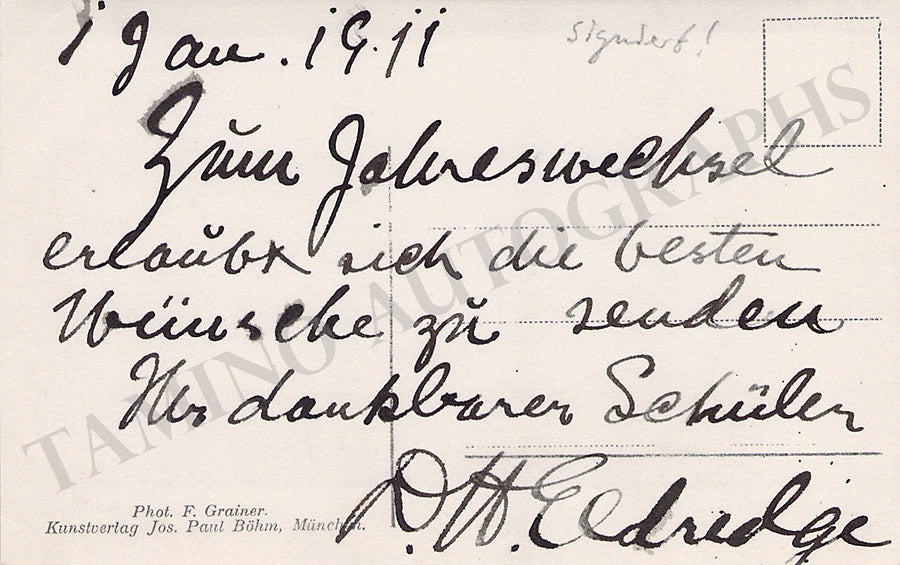 1 Jan. 1911
signiert!
Zum Jahreswechsel
erlaubt sich die besten
Wünsche zu senden
Ihr dankbarer Schüler
D. H. Eldredge
Phot. F. Grainer.
Kunstverlag Jos. Paul Böhm, München.
TAMINO AUTOGRAPHS